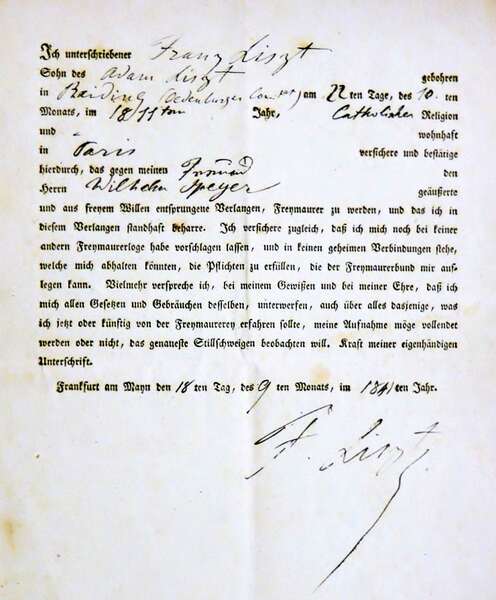 Ich unterschriebener Franz Liszt
Sohn des Adam Liszt gebohren
in Raiding (Oedenburger Comitat) am 22 ten Tage, des 10. ten
Monats, im 1811 ten Jahr, Catholischer Religion
und wohnhaft
in Paris versichere und bestätige
hierdurch, das gegen meinen Freund den
Herrn Wilhelm Speyer geäußerte
und aus freyem Willen entsprungene Verlangen, Freymaurer zu werden, und das ich in
diesem Verlangen standhaft beharre. Ich versichere zugleich, daß ich mich noch bei keiner
andern Freymaurerloge habe vorschlagen lassen, und in keinen geheimen Verbindungen stehe,
welche mich abhalten könnten, die Pflichten zu erfüllen, die der Freymaurerbund mir auf-
legen kann. Vielmehr verspreche ich, bei meinem Gewißen und bei meiner Ehre, daß ich
mich allen Gesetzen und Gebräuchen desselben, unterwerfen, auch über alles dasjenige, was
ich jetzt oder künftig von der Freymaurerey erfahren sollte, meine Aufnahme möge vollendet
werden oder nicht, das genaueste Stillschweigen beobachten will. Kraft meiner eigenhändigen
Unterschrift.
Frankfurt am Mayn den 18 ten Tag, des 9 ten Monats, im 1841 ten Jahr.
F. Liszt